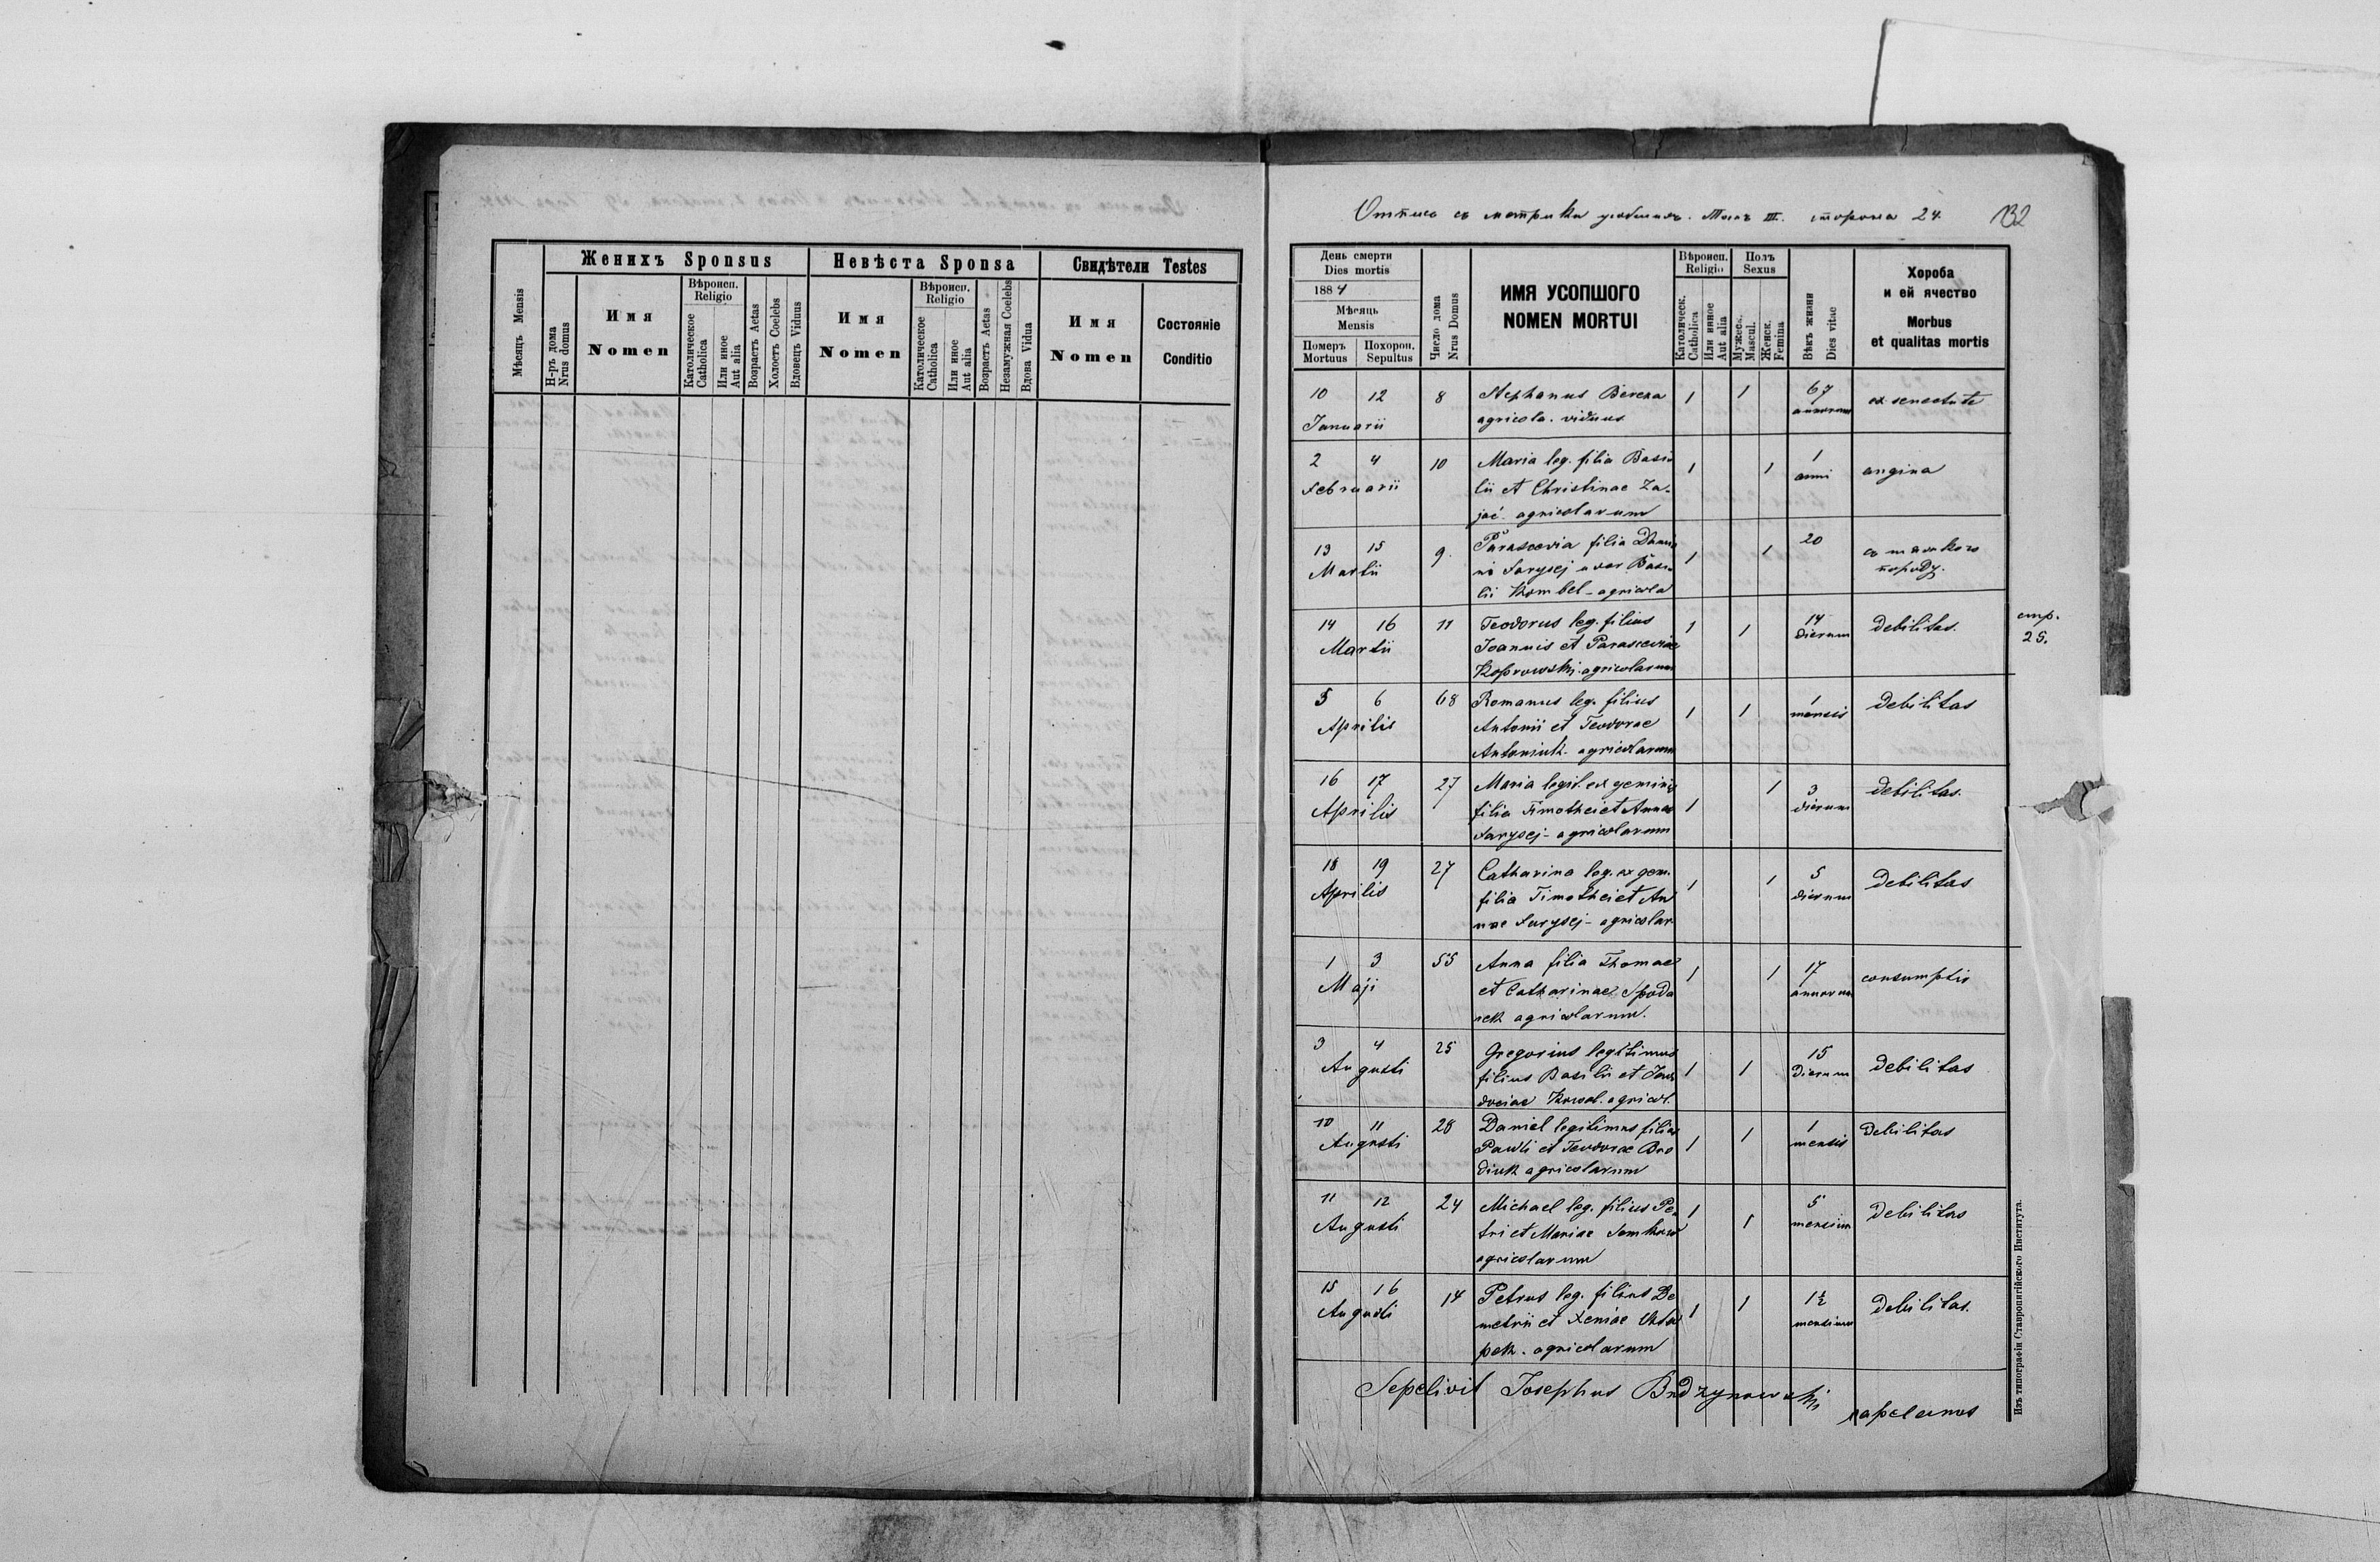 Женихъ Sponsus
Невѣста Sponsa
Свидѣтели Testes
Мѣсяцъ Mensis
Н-ръ дома
Nrus domus
Имя
Nomen
Вѣроисп.
Religio
Католическое
Catholica
Или иное
Aut alia
Возрастъ Aetas
Холостъ Coelebs
Вдовецъ Viduus
Имя
Nomen
Вѣроисп.
Religio
Католическое
Catholica
Или иное
Aut alia
Возрастъ Aetas
Незамужная Coelebs
Вдова Vidua
Имя
Nomen
Состояніе
Conditio
Отпись съ метрики Томъ III. сторона 24.
132
День смерти
Dies mortis
1884
Мѣсяць
Mensis
Померъ
Mortuus
Похорон.
Sepultus
Число дома
Nrus Domus
ИМЯ УСОПШОГО
NOMEN MORTUI
Вѣроисп.
Religio
Католическ.
Catholica
Или инное
Aut alia
Полъ
Sexus
Мужеск.
Mascul.
Женск.
Femina
Вѣкъ жизни
Dies vitae
Хороба
и ей ячество
Morbus
et qualitas mortis
10 12 8 Stephanus Bereza 1 1 67 ex senectute
Januarii agricola. viduus annorum
2 4 10 Maria leg. filia Basi- 1 1 1 angina
Februarii lii et Christinae Za- anni
jać. agricolarum
13 15 9. Parascevia filia 1 1 20
Martii Farysej uxor Basi-
lii Kombel - agricola
14 16 11 Teodorus leg. filius 1 1 14 debilitas.
Martii Joannis et Parasceviae dierum
Koprowski. agricolarum
стр.
25.
5 6 68 Romanus leg. filius 1 1 1 debilitas
Aprilis Antonii et Teodorae mensis
Antoniuk. agricolarum
16 17 27 Maria legit. ex geminis 1 1 3 debilitas.
Aprilis filia Timothei et Annae dierum
Farysej - agricolarum
18 19 27 Catharina leg. ex gem. 1 1 5 debilitas
Aprilis filia Timothei et An dierum
nae Farysej - agricolar
1 3 55 Anna filia Thomae 1 1 17
Maji et Catharinae Spoda annorum
rek agricolarum.
3 4 25 Gregorius legitimus 1 1 15 debilitas
Augusti filius Basilii et dierum
dociae Kowal. agricol.
10 11 28 Daniel legitimus filius 1 1 1 debilitas
Augusti Pauli et Teodorae mensis
diuk agricolarum
11 12 24 Michael leg. filius Pe- 1 1 5 debilitas
Augusti tri et Mariae mensium
agricolarum
15 16 14 Petrus leg. filius De 1 1 1½ debilitas.
Augusti metrii et Xeniae mensium
pek. agricolarum
Sepelivit Josephus Budzynowski
capelanus
Изъ типографіи Ставропигійского Института.